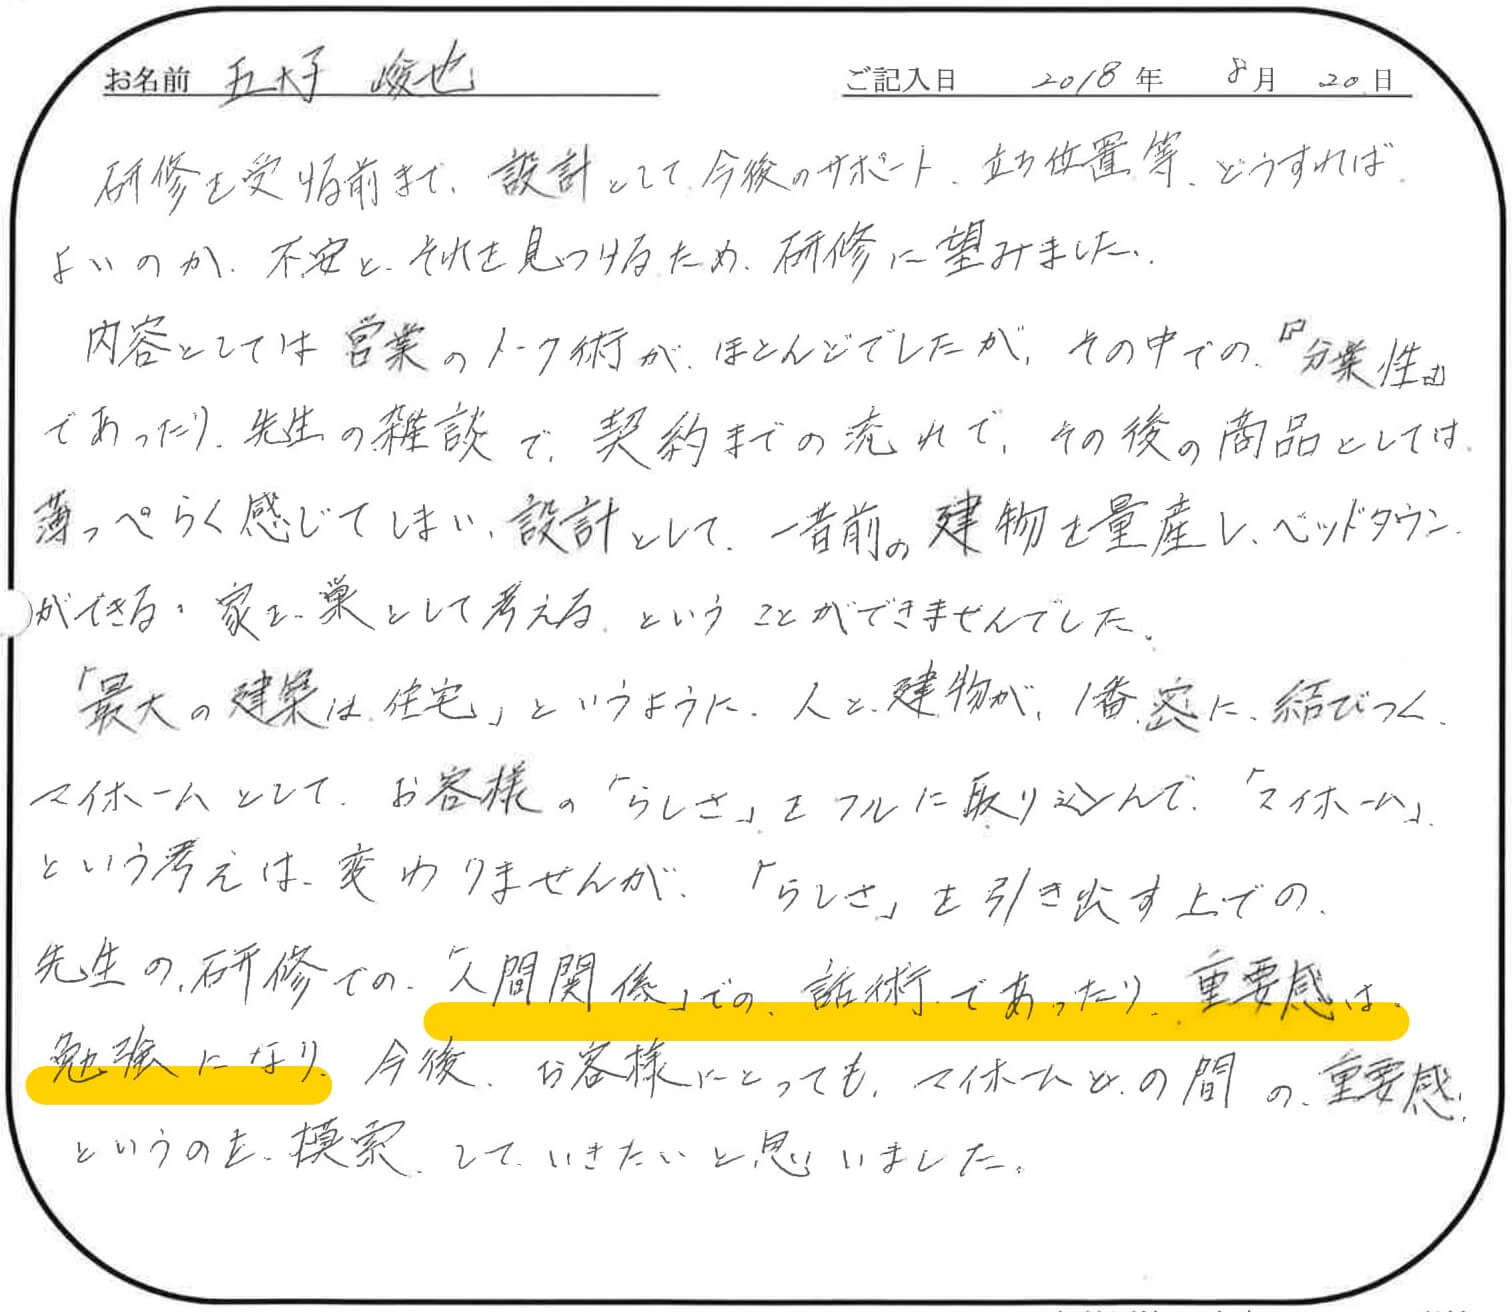 お名前 五大子 峻也 ご記入日 2018年 8月 20日
研修を受ける前まで、設計として今後のサポート、立ち位置等、どうすれば
よいのか、不安と、それを見つけるため、研修に望みました。
内容としては営業のトーク術が、ほとんどでしたが、その中での、『分業性』
であったり、先生の雑談で、契約までの流れで、その後の商品としては、
薄っぺらく感じてしまい、設計として、一昔前の建物を量産し、ベッドタウン
ができる・家を、巣として考える、ということができませんでした。
「最大の建築は、住宅」というように、人と、建物が、1番、密に、結びつく、
マイホームとして、お客様の「らしさ」をフルに取り込んで、「マイホーム」
という考えは、変わりませんが、「らしさ」を引き出す上での、
先生の、研修での、「人間関係」での、話術、であったり、重要感は、
勉強になり、今後、お客様にとっても、マイホームとの間の、重要感、
というのを、模索、して、いきたいと思いました。